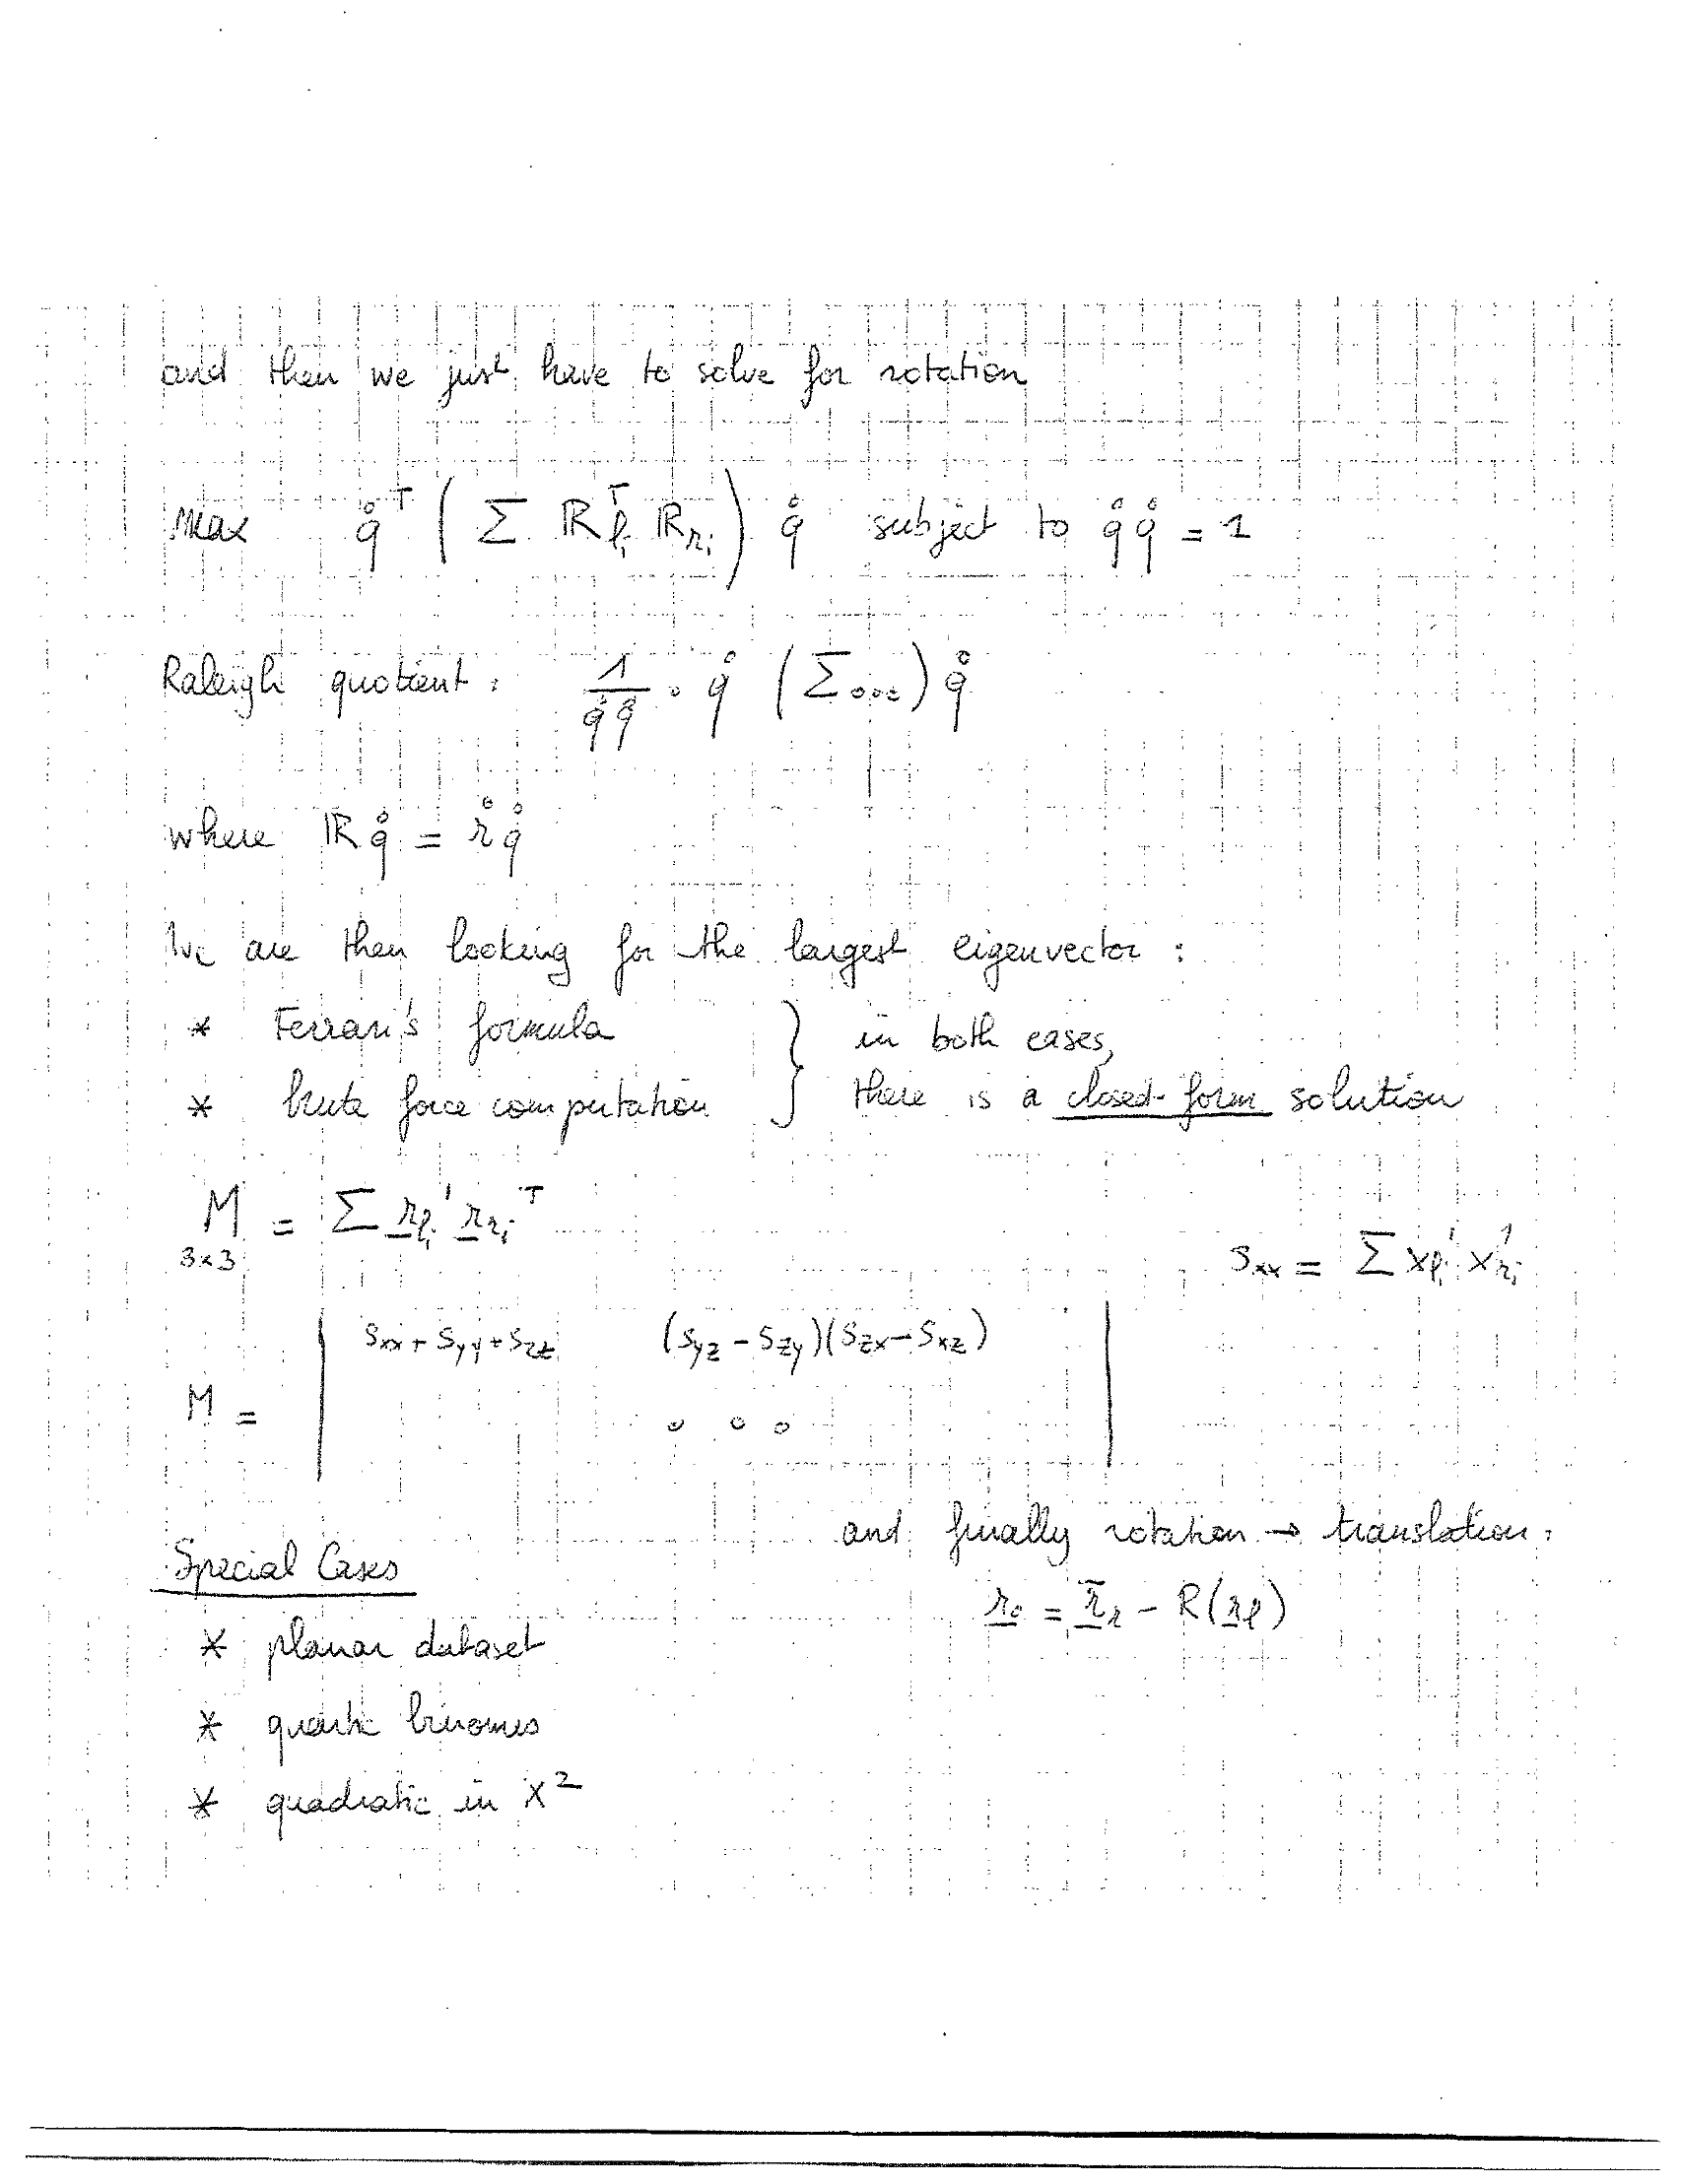 and then we just have to solve for rotation
Max q̊ᵀ ( Σ ℝᵀ_{l_i} ℝ_{r_i} ) q̊ subject to q̊ q̊ = 1
Raleigh quotient : 1/(q̊ q̊) ∘ q̊ ( Σ ... ) q̊
where ℝ q̊ = r̊ q̊
We are then looking for the largest eigenvector :
* Ferrari's formula
* brute force computation
} in both cases,
there is a closed-form solution
M = Σ r_{l_i}' r_{r_i}ᵀ
3x3
S_xx = Σ x_{l_i}' x_{r_i}'
M = | S_xx + S_yy + S_zz (S_yz - S_zy)(S_zx - S_xz) |
...
and finally rotation → translation :
r_0 = r̄_r - R(r_l)
Special Cases
* planar dataset
* quartic binomes
* quadratic in x²